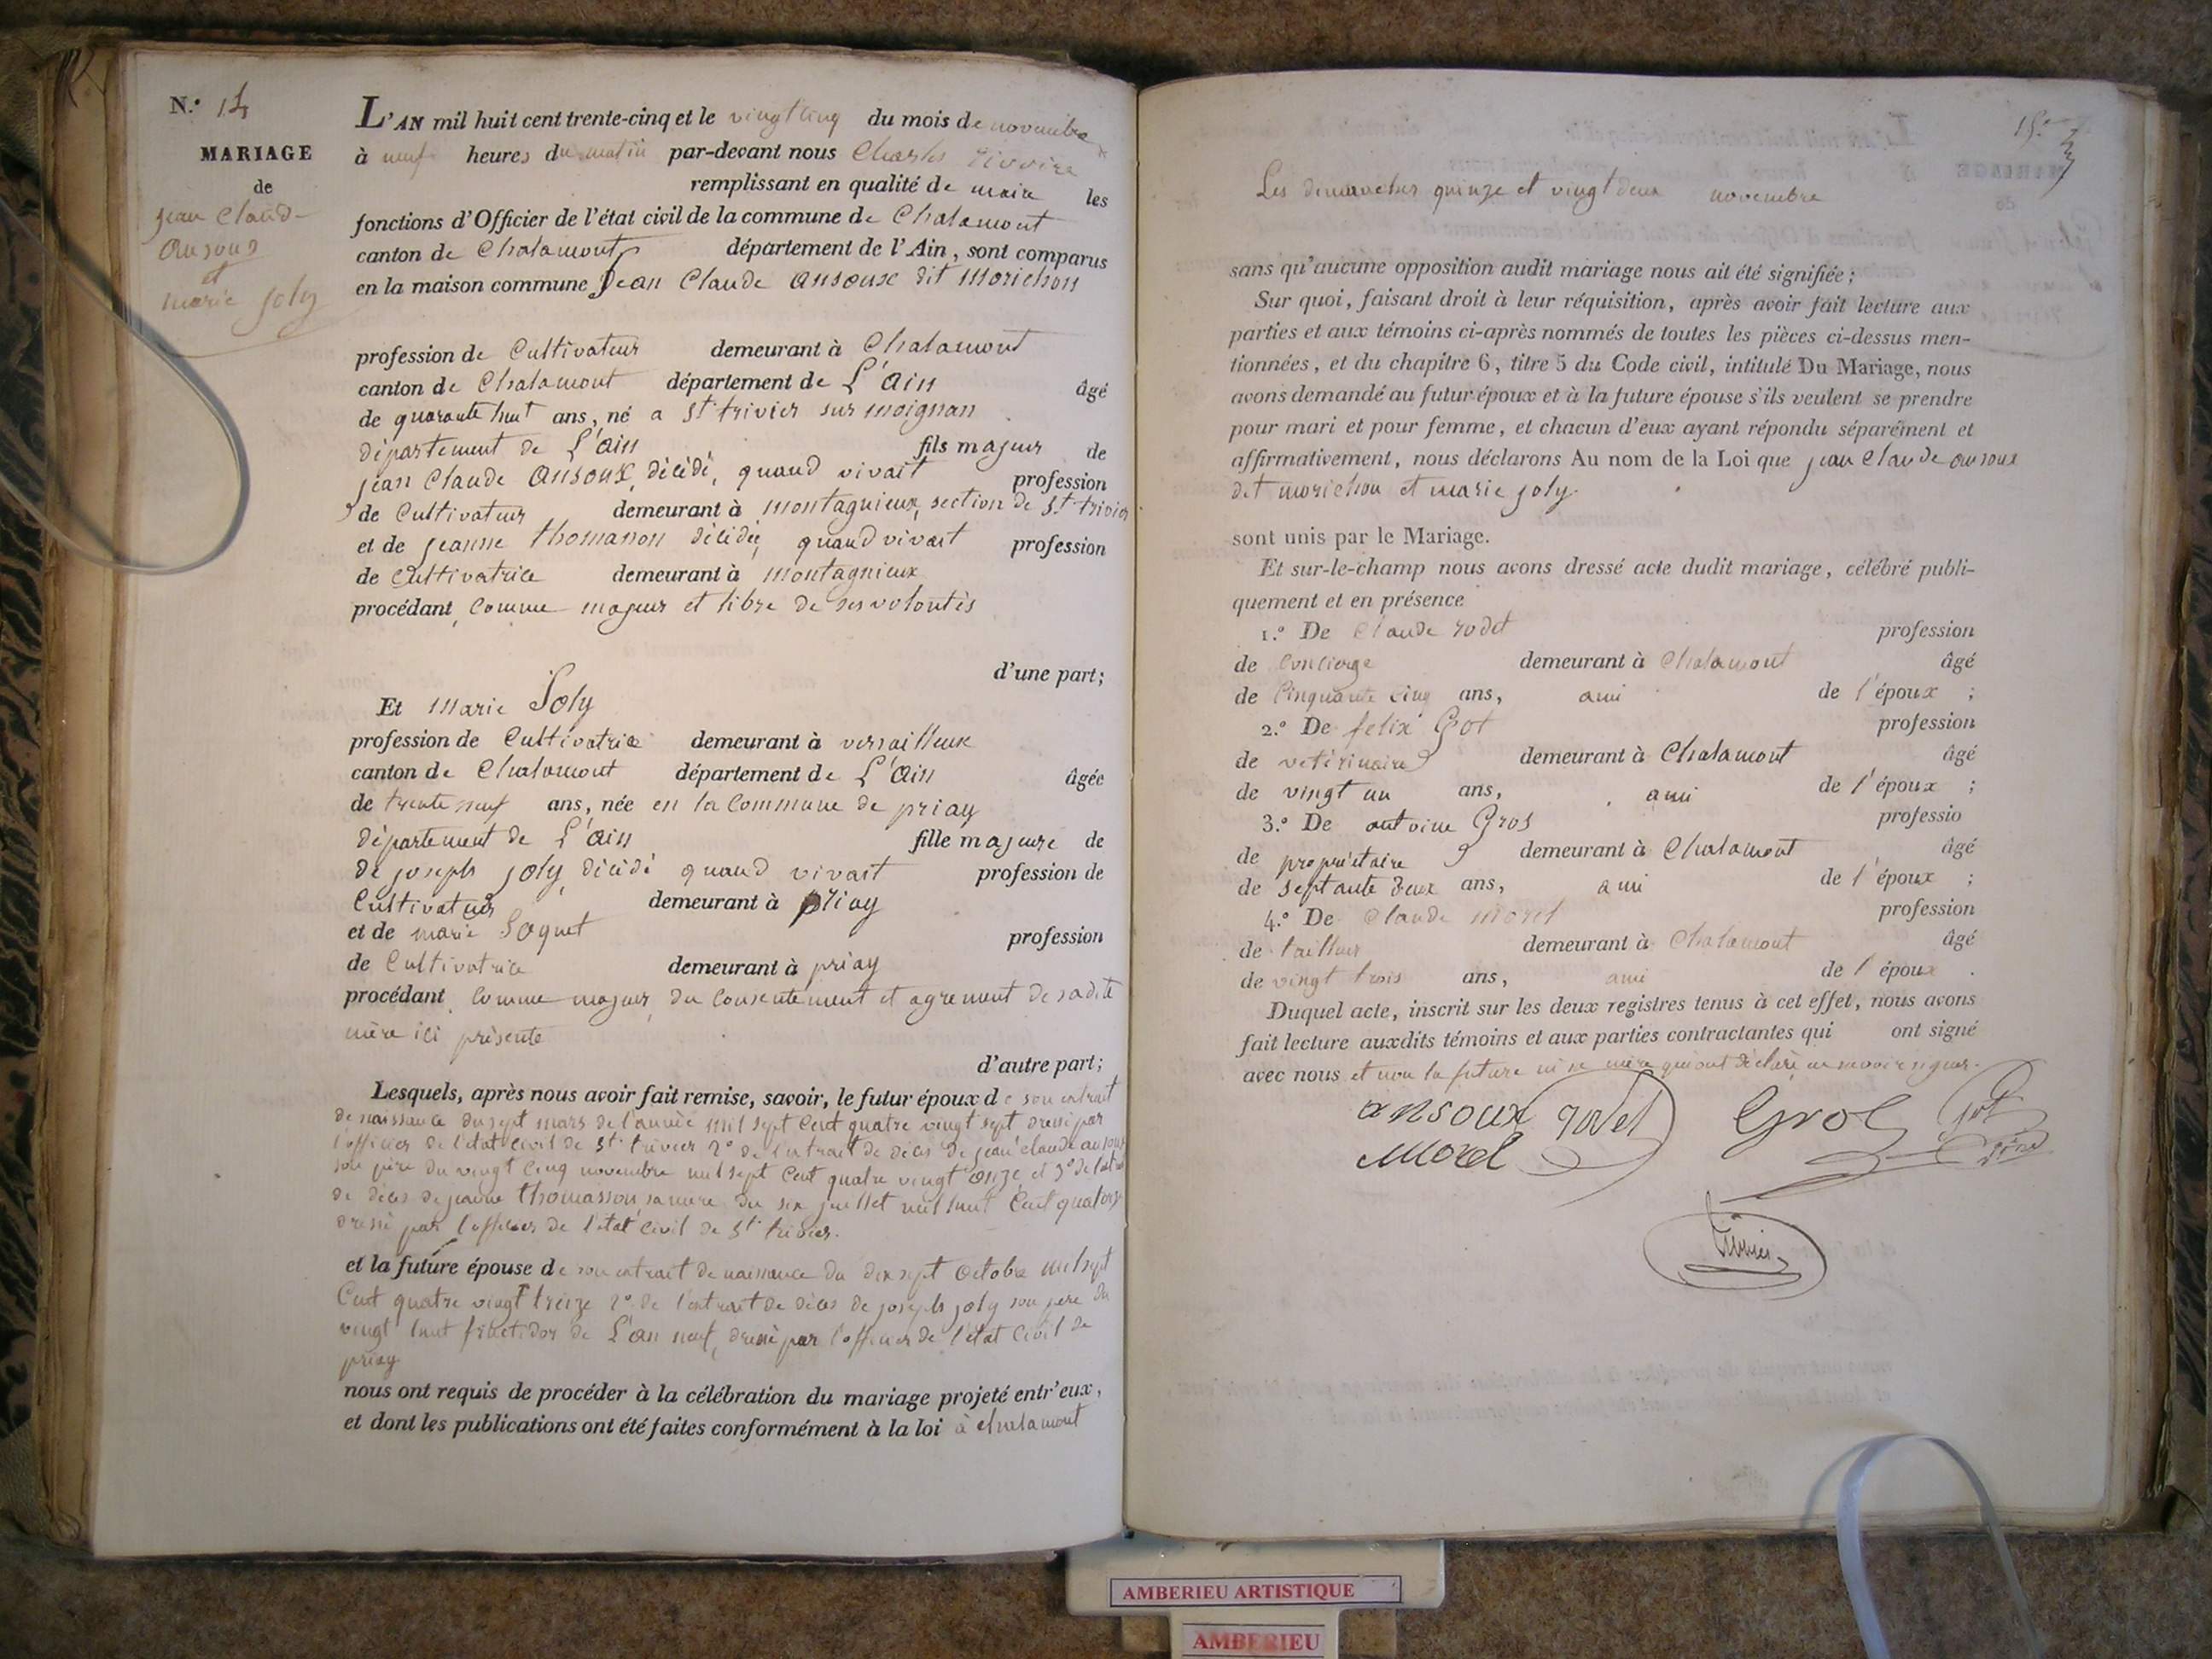 N.º 14
MARIAGE
de
jean Claude
ansoux
et
marie joly
L'AN mil huit cent trente-cinq et le vingt cinq du mois de novembre
à neuf heures du matin par-devant nous Charles
remplissant en qualité de maire les
fonctions d'Officier de l'état civil de la commune de Chalamont
canton de Chalamont département de l'Ain, sont comparus
en la maison commune Jean Claude ansoux dit morichon
profession de Cultivateur demeurant à Chalamont
canton de Chalamont département de L'ain âgé
de quarante huit ans, né a St trivier sur moignan
département de L'ain fils majeur de
jean Claude ansoux, décédé, quand vivait profession
de Cultivateur demeurant à montagnieux, section de St trivier
et de jeanne thomasson décédée, quand vivait profession
de Cultivatrice demeurant à montagnieux
procédant, comme majeur et libre de ses volontés
d'une part;
Et marie Joly
profession de Cultivatrice demeurant à versailleux
canton de Chalamont département de L'ain âgée
de trente neuf ans, née en la Commune de priay
département de L'ain fille majeure de
de joseph joly, décédé quand vivait profession de
Cultivateur demeurant à priay
et de marie Joguet profession
de Cultivatrice demeurant à priay
procédant, comme majeur, du consentement et agrement de sadite
mère ici présente
d'autre part;
Lesquels, après nous avoir fait remise, savoir, le futur époux de son extrait
de naissance du sept mars de l'année mil sept Cent quatre vingt sept dressé par
l'officier de l'état civil de St trivier 2º de l'extrait de décès de jean claude ansoux
son père du vingt cinq novembre mil sept Cent quatre vingt onze, et 3º de l'extrait
de décès de jeanne thomasson sa mère du six juillet mil huit Cent quatorze
dressé par l'officier de l'état civil de St trivier.
et la future épouse de son extrait de naissance du dix sept octobre mil sept
Cent quatre vingt treize 2º de l'extrait de décès de joseph joly son père du
vingt huit fructidor de L'an neuf, dressé par l'officier de l'état Civil de
priay
nous ont requis de procéder à la célébration du mariage projeté entr'eux,
et dont les publications ont été faites conformément à la loi à chalamont
15.e
Les dimanches quinze et vingt deux novembre
sans qu'aucune opposition audit mariage nous ait été signifiée;
Sur quoi, faisant droit à leur réquisition, après avoir fait lecture aux
parties et aux témoins ci-après nommés de toutes les pièces ci-dessus men-
tionnées, et du chapitre 6, titre 5 du Code civil, intitulé Du Mariage, nous
avons demandé au futur époux et à la future épouse s'ils veulent se prendre
pour mari et pour femme, et chacun d'eux ayant répondu séparément et
affirmativement, nous déclarons Au nom de la Loi que jean Claude ansoux
dit morichon et marie joly.
sont unis par le Mariage.
Et sur-le-champ nous avons dressé acte dudit mariage, célébré publi-
quement et en présence
1.º De Claude rodet profession
de Concierge demeurant à Chalamont âgé
de Cinquante cinq ans, ami de l'époux ;
2.º De felix Got profession
de vétérinaire demeurant à Chalamont âgé
de vingt un ans, ami de l'époux ;
3.º De antoine Gros professio
de propriétaire demeurant à Chalamont âgé
de septante deux ans, ami de l'époux ;
4.º De Claude morel profession
de tailleur demeurant à Chalamont âgé
de vingt trois ans, ami de l'époux .
Duquel acte, inscrit sur les deux registres tenus à cet effet, nous avons
fait lecture auxdits témoins et aux parties contractantes qui ont signé
avec nous et non la future ni sa mère qui ont déclaré ne savoir signer.
ansoux rodet Gros got
Morel
AMBERIEU ARTISTIQUE
AMBERIEU